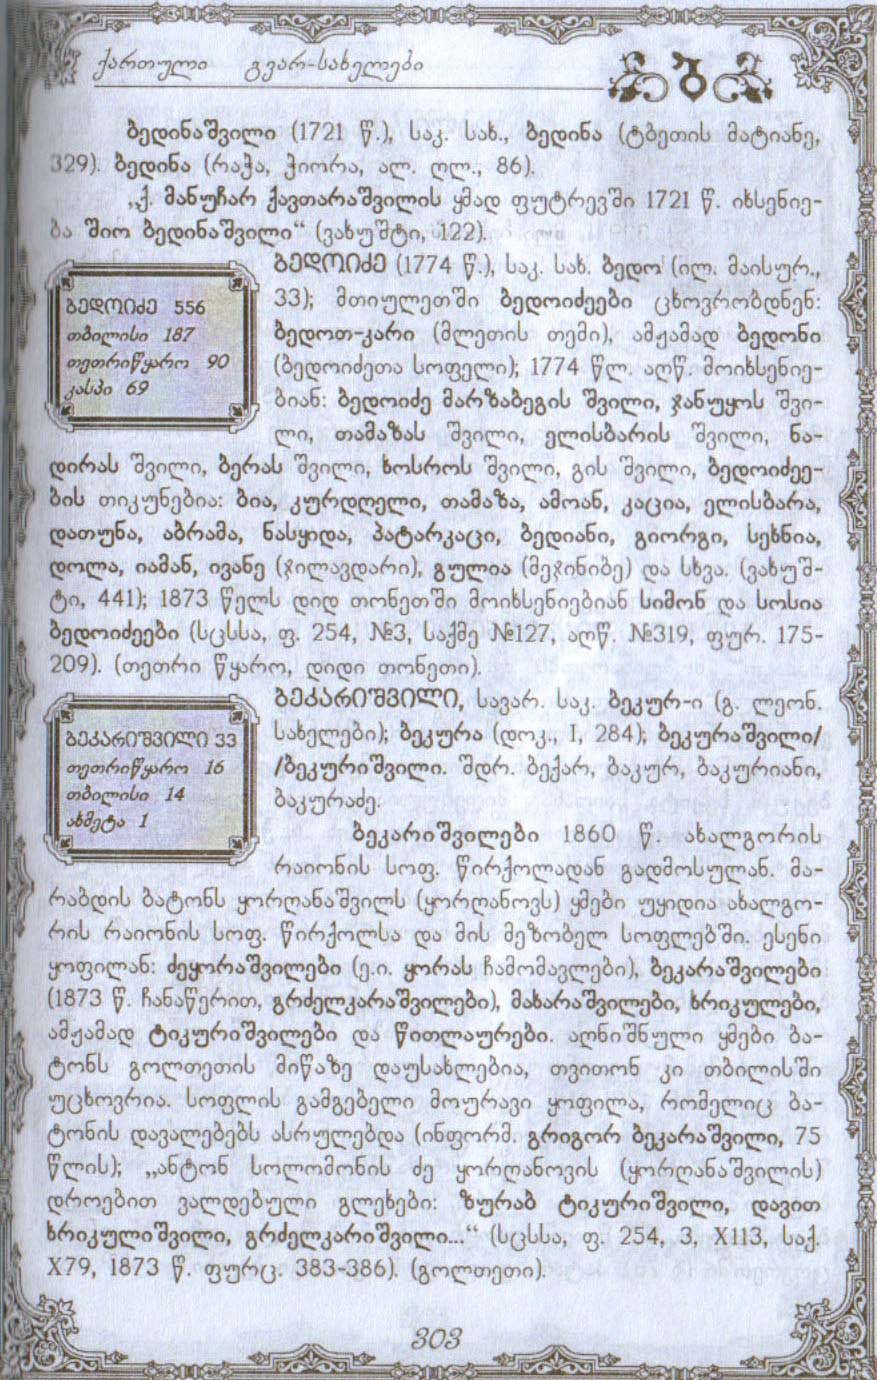 ქართული გვარ-სახელები
ბ
ბედინაშვილი (1721 წ.), საკ. სახ., ბედინა (ტბეთის მატიანე,
329). ბედინა (რაჭა, ჭიორა, ალ. ღლ., 86).
„ქ. მანუჩარ ქავთარაშვილის ყმად ფუტრევში 1721 წ. იხსენიე-
ბა შიო ბედინაშვილი“ (ვახუშტი, 122).
ბედოიძე 556
თბილისი 187
თეთრიწყარო 90
კასპი 69
ბედოიძე (1774 წ.), საკ. სახ. ბედო (ილ. მაისურ.,
33); მთიულეთში ბედოიძეები ცხოვრობდნენ:
ბედოთ-კარი (მლეთის თემი), ამჟამად ბედონი
(ბედოიძეთა სოფელი); 1774 წლ. აღწ. მოიხსენიე-
ბიან: ბედოიძე მარზაბეგის შვილი, ჯანუყოს შვი-
ლი, თამაზას შვილი, ელისბარის შვილი, ნა-
დირას შვილი, ბერას შვილი, ხოსროს შვილი, გის შვილი, ბედოიძეე-
ბის თიკუნებია: ბია, კურდღელი, თამაზა, ამოან, კაცია, ელისბარა,
დათუნა, აბრამა, ნასყიდა, პატარკაცი, ბედიანი, გიორგი, სეხნია,
დოლა, იამან, ივანე (ჯილავდარი), გულია (მეჯინიბე) და სხვა. (ვახუშ-
ტი, 441); 1873 წელს დიდ თონეთში მოიხსენიებიან სიმონ და სოსია
ბედოიძეები (სცსსა, ფ. 254, №3, საქმე №127, აღწ. №319, ფურ. 175-
209). (თეთრი წყარო, დიდი თონეთი).
ბეკარიშვილი 33
თეთრიწყარო 16
თბილისი 14
ახმეტა 1
ბეკარიშვილი, სავარ. საკ. ბეკურ-ი (გ. ლეონ.
სახელები); ბეკურა (დოკ., I, 284); ბეკურაშვილი/
/ბეკურიშვილი. შდრ. ბექარ, ბაკურ, ბაკურიანი,
ბაკურაძე.
ბეკარიშვილები 1860 წ. ახალგორის
რაიონის სოფ. წირქოლადან გადმოსულან. მა-
რაბდის ბატონს ყორღანაშვილს (ყორღანოვს) ყმები უყიდია ახალგო-
რის რაიონის სოფ. წირქოლსა და მის მეზობელ სოფლებში. ესენი
ყოფილან: ძეყორაშვილები (ე.ი. ყორას ჩამომავლები), ბეკარაშვილები
(1873 წ. ჩანაწერით, გრძელკარაშვილები), მახარაშვილები, ხრიკულები,
ამჟამად ტიკურიშვილები და წითლაურები. აღნიშნული ყმები ბა-
ტონს გოლთეთის მიწაზე დაუსახლებია, თვითონ კი თბილისში
უცხოვრია. სოფლის გამგებელი მოურავი ყოფილა, რომელიც ბა-
ტონის დავალებებს ასრულებდა (ინფორმ. გრიგორ ბეკარაშვილი, 75
წლის); „ანტონ სოლომონის ძე ყორღანოვის (ყორღანაშვილის)
დროებით ვალდებული გლეხები: ზურაბ ტიკურიშვილი, დავით
ხრიკულიშვილი, გრძელკარიშვილი...“ (სცსსა, ფ. 254, 3, X113, საქ.
X79, 1873 წ. ფურც. 383-386). (გოლთეთი).
303